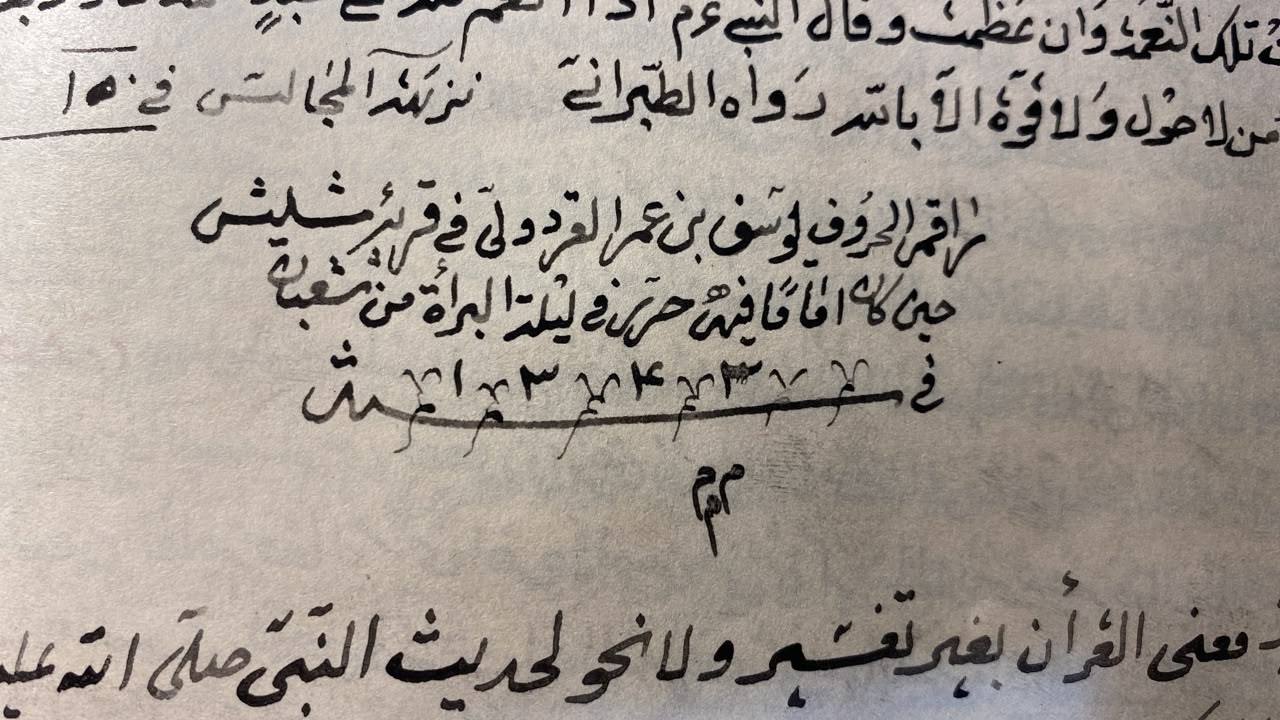 تلك النّعمة وَان عَظمت وقال النبي عم اذا
من لا حَوْل وَلا قوّة الّا بالله رَواه الطّبرانى نزهة المجالس فى ١٥
راقم الحرُوف يوسف بن عمر القردولى فى قرية شليش
حين كان امامًا فيه حرّر فى ليلة البرأة من شعبان
فى ٣ ٤ ٣ ١ سنة
م م م
معنى القرأن بغير تفسير ولا نحو لحديث النّبىّ صلّى الله عليه